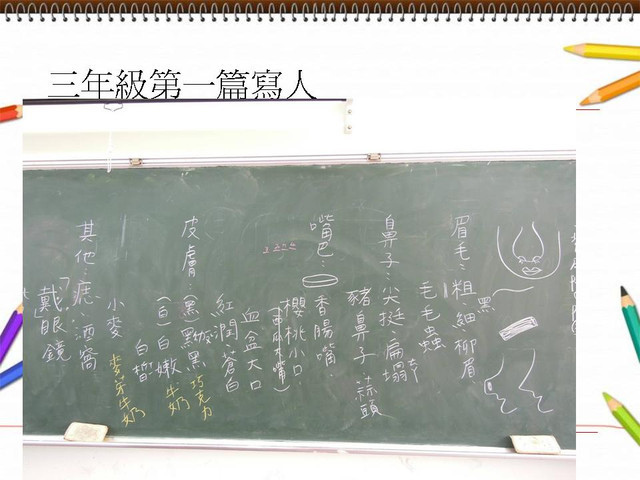 三年級第一篇寫人
眉毛：粗細柳眉
黑
毛毛蟲
鼻子：尖挺扁塌
豬鼻子 蒜頭
嘴巴：
香腸嘴
櫻桃小口
血盆大口
紅潤 蒼白
皮膚：(黑)
(白)白嫩 牛奶
巧克力
白皙
小麥
其他：痣 酒窩
戴眼鏡